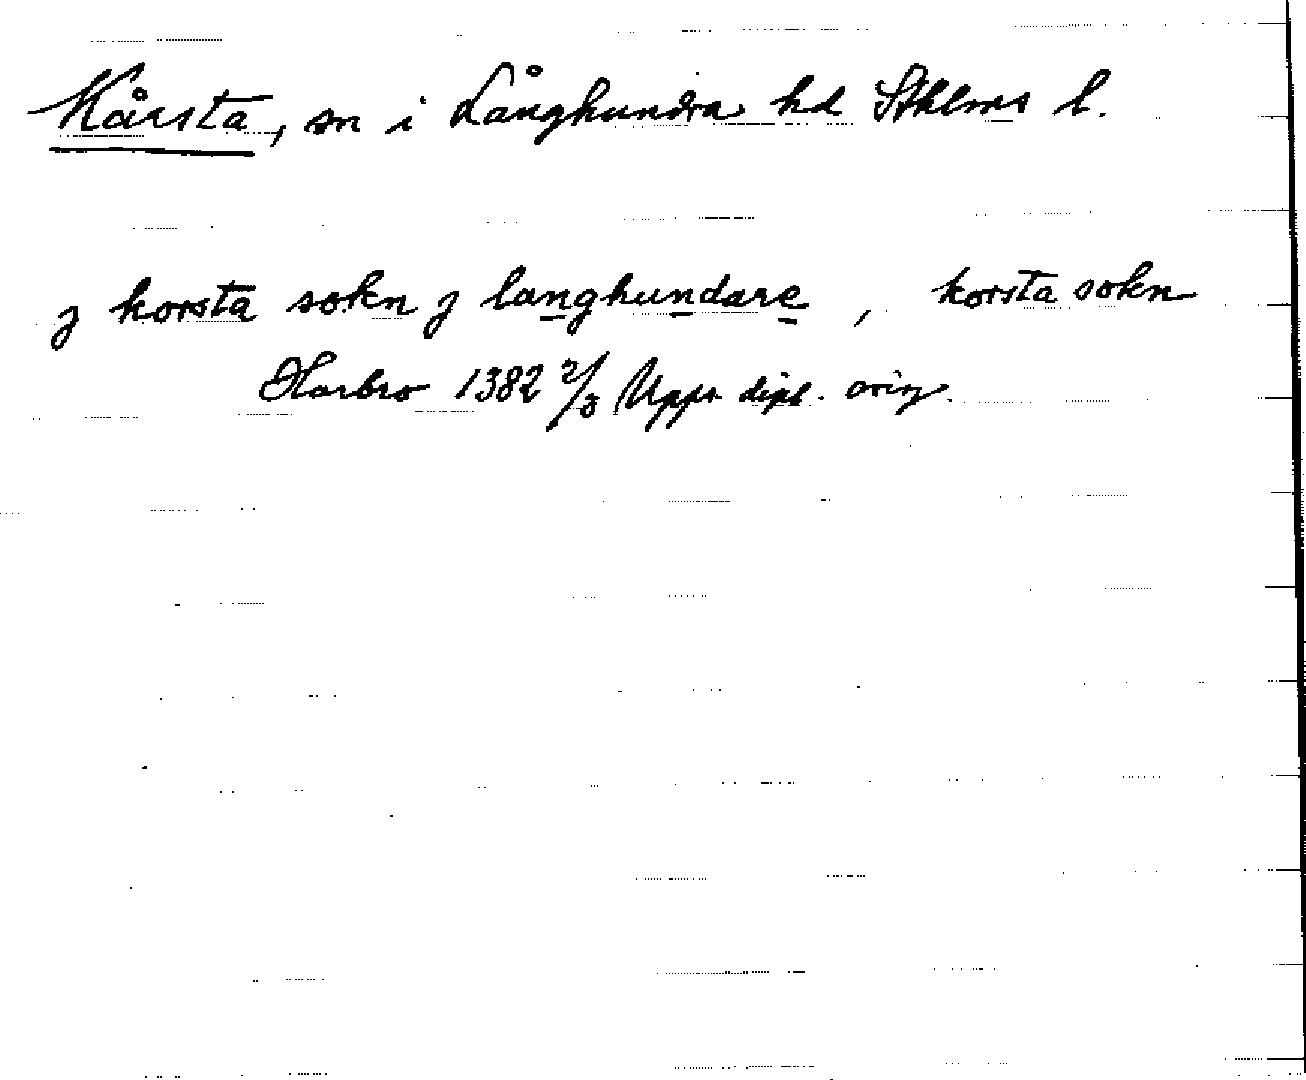 Kårsta, sn i Långhundra hd Sthlms l.
j korsta sokn j langhundare, korsta sokn
Harbro 1382 2/3 Upps. dipl. orig.